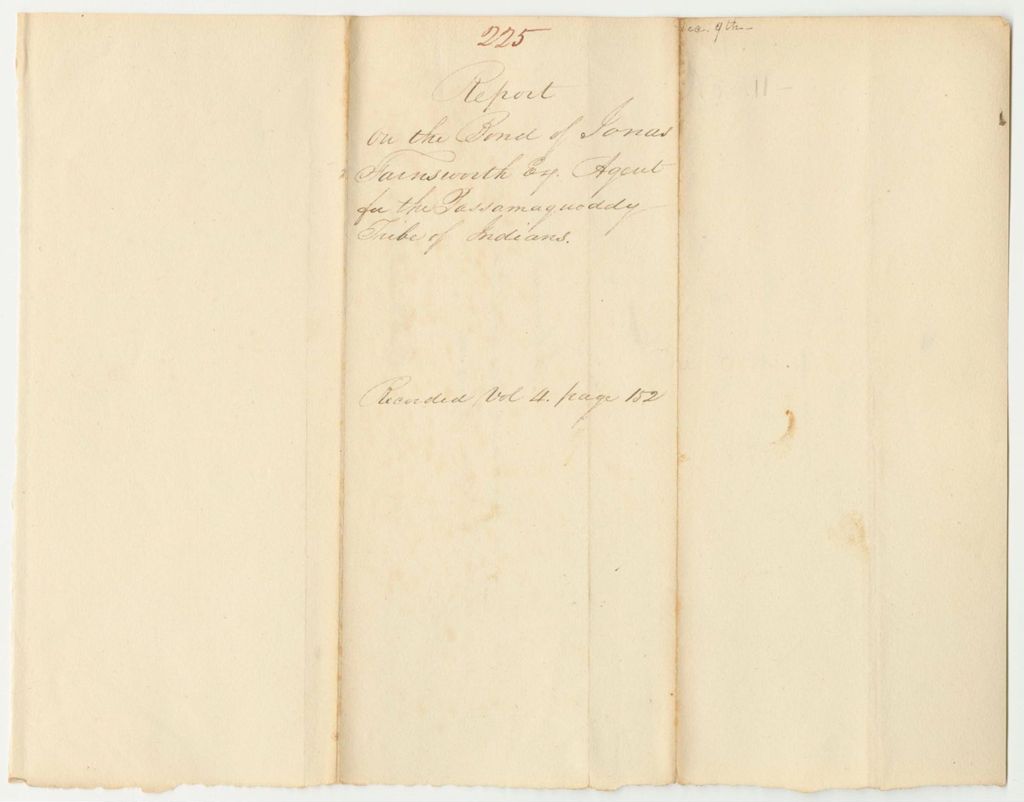 225
Report
on the Bond of Jonas
Farnsworth Esq. Agent
for the Passamaquoddy
Tribe of Indians.
Recorded Vol 4. page 152
9th